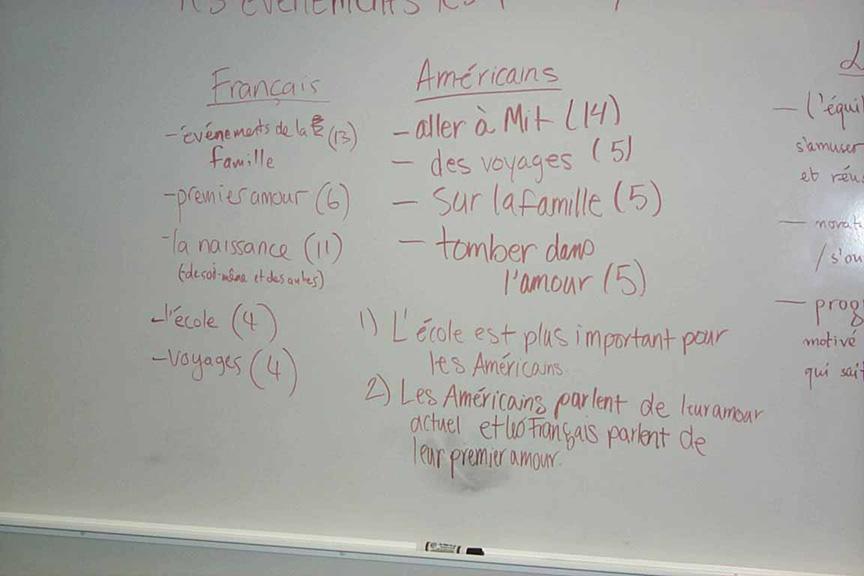 les événements les
Français
- événements de la (13)
famille
- premier amour (6)
- la naissance (11)
(de soi-même et des autres)
- l'école (4)
- voyages (4)
Américains
- aller à Mit (14)
- des voyages (5)
- sur la famille (5)
- tomber dans
l'amour (5)
1) L'école est plus important pour
les Américains.
2) Les Américains parlent de leur amour
actuel et les Français parlent de
leur premier amour.
- l'équi
s'amuser
et réu
- novat
/s'ou
- prog
motivé
qui sait